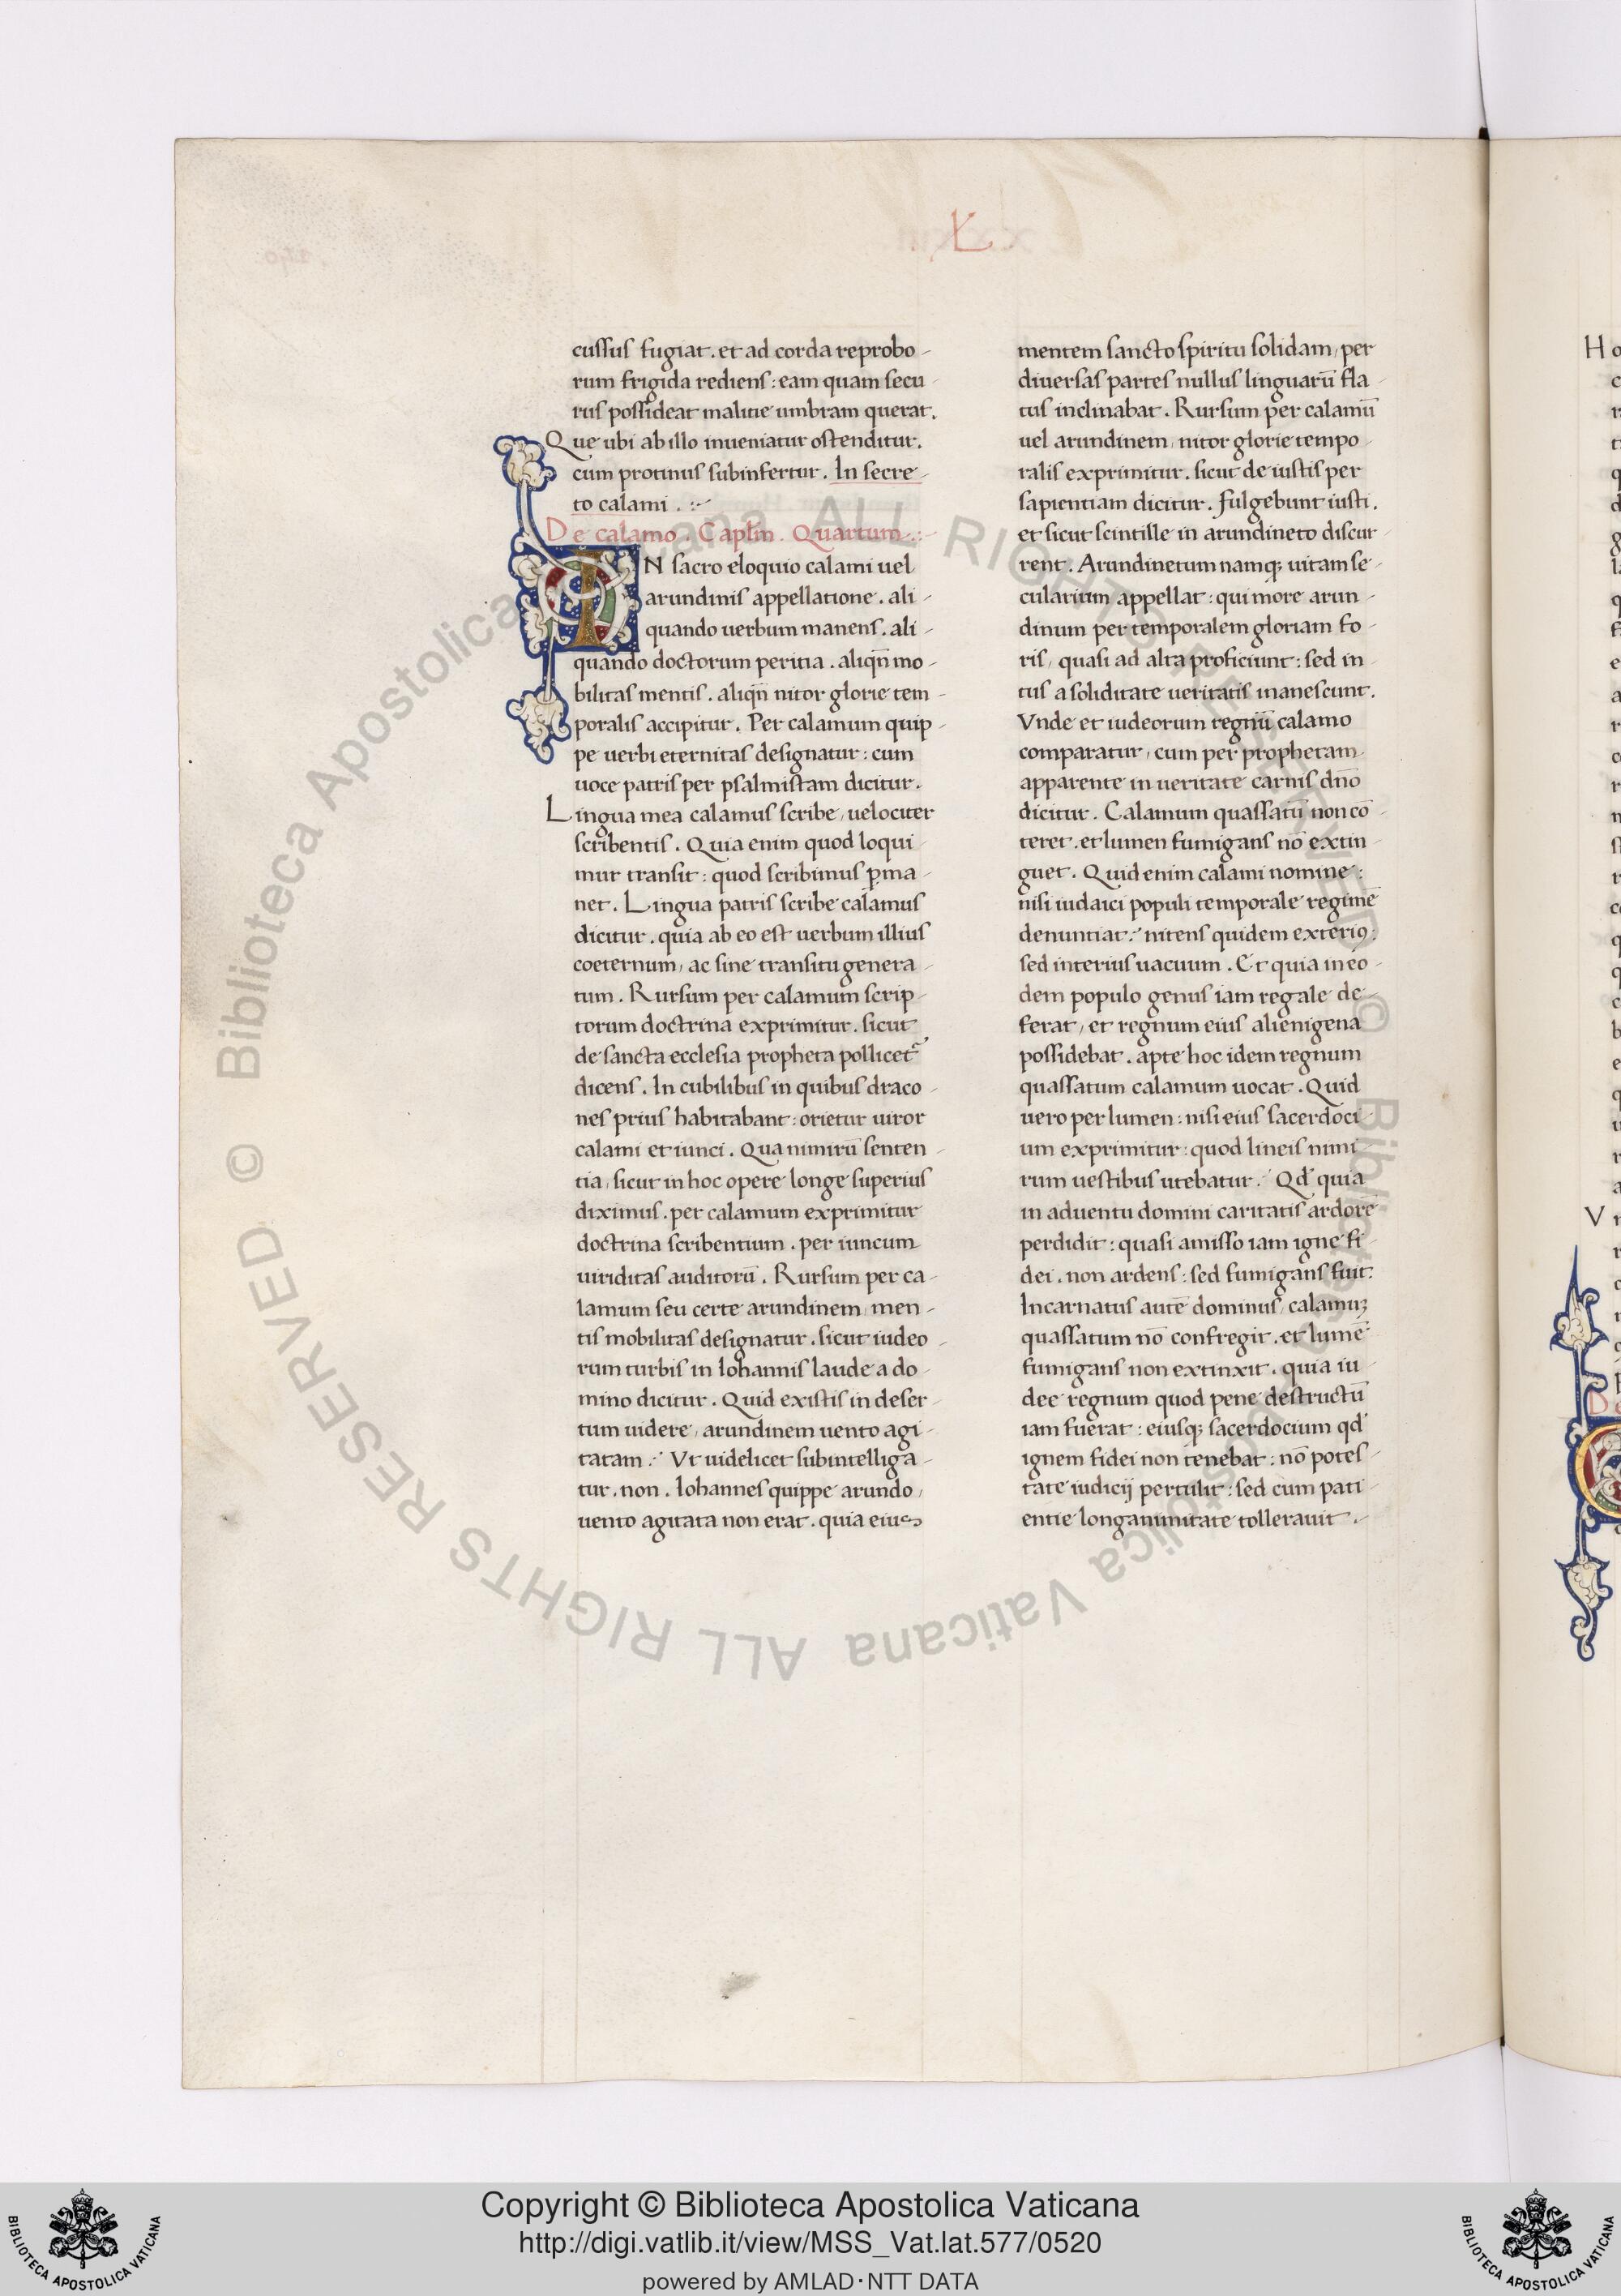 L
cussus fugiat. et ad corda reprobo-
rum frigida rediens: eam quam secu-
rus possideat malitie umbram querat.
Que ubi ab illo inueniatur ostenditur.
cum protinus subinfertur. In secre-
to calami.
De calamo. Caplm̄. Quartum.
IN sacro eloquio calami uel
arundinis appellatione. ali-
quando uerbum manens. ali-
quando doctorum peritia. aliqn̄ mo-
bilitas mentis. aliqn̄ nitor glorie tem-
poralis accipitur. Per calamum quip-
pe uerbi eternitas designatur: cum
uoce patris per psalmistam dicitur.
Lingua mea calamus scribe, uelociter
scribentis. Quia enim quod loqui-
mur transit: quod scribimus ꝑma-
net. Lingua patris scribe calamus
dicitur. quia ab eo est uerbum illius
coeternum, ac sine transitu genera-
tum. Rursum per calamum scrip-
torum doctrina exprimitur. sicut
de sancta ecclesia propheta pollicet᷑
dicens. In cubilibus in quibus draco-
nes prius habitabant: orietur uiror
calami et iunci. Qua nimirū senten-
tia, sicut in hoc opere longe superius
diximus. per calamum exprimitur
doctrina scribentium. per iuncum
uiriditas auditorū. Rursum per ca-
lamum seu certe arundinem, men-
tis mobilitas designatur. sicut iudeo-
rum turbis in Iohannis laude a do-
mino dicitur. Quid existis in deser-
tum uidere, arundinem uento agi-
tatam? Vt uidelicet subintelliga-
tur. non. Iohannes quippe arundo,
uento agitata non erat. quia eius
mentem sancto spiritu solidam, per
diuersas partes nullus linguarū fla-
tus inclinabat. Rursum per calamū
uel arundinem, nitor glorie tempo-
ralis exprimitur. sicut de iustis per
sapientiam dicitur. Fulgebunt iusti.
et sicut scintille in arundineto discur-
rent. Arundinetum namqꝫ uitam se-
cularium appellat: qui more arun-
dinum per temporalem gloriam fo-
ris, quasi ad alta proficiunt: sed in-
tus a soliditate ueritatis inanescunt.
Vnde et iudeorum regnū calamo
comparatur, cum per prophetam
apparente in ueritate carnis dn̄o
dicitur. Calamum quassatū non cō-
teret. et lumen fumigans nō extin-
guet. Quid enim calami nomine:
nisi iudaici populi temporale regimē
denuntiat? nitens quidem exteriꝯ:
sed interius uacuum. Et quia in eo-
dem populo genus iam regale de-
ferat, et regnum eius alienigena
possidebat. apte hoc idem regnum
quassatum calamum uocat. Quid
uero per lumen: nisi eius sacerdoci-
um exprimitur: quod lineis nimi-
rum uestibus utebatur? Qd̄ quia
in aduentu domini caritatis ardore
perdidit: quasi amisso iam igne fi-
dei. non ardens: sed fumigans fuit.
Incarnatus autē dominus, calamuꝫ
quassatum nō confregit. et lumē
fumigans non extinxit. quia iu-
dee regnum quod pene destructū
iam fuerat: eiusqꝫ sacerdocium qd̄
ignem fidei non tenebat: nō potes-
tate iudicij pertulit: sed cum pati-
entie longanimitate tollerauit.
© Biblioteca Apostolica Vaticana ALL RIGHTS RESERVED © Biblioteca Apostolica Vaticana ALL RIGHTS RESERVED
Copyright © Biblioteca Apostolica Vaticana
http://digi.vatlib.it/view/MSS_Vat.lat.577/0520
powered by AMLAD·NTT DATA
BIBLIOTECA APOSTOLICA VATICANA
BIBLIOTECA APOSTOLICA VATICANA